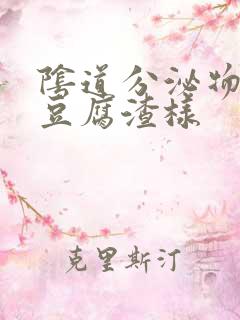 陰道分泌物
豆腐渣樣
克里斯汀